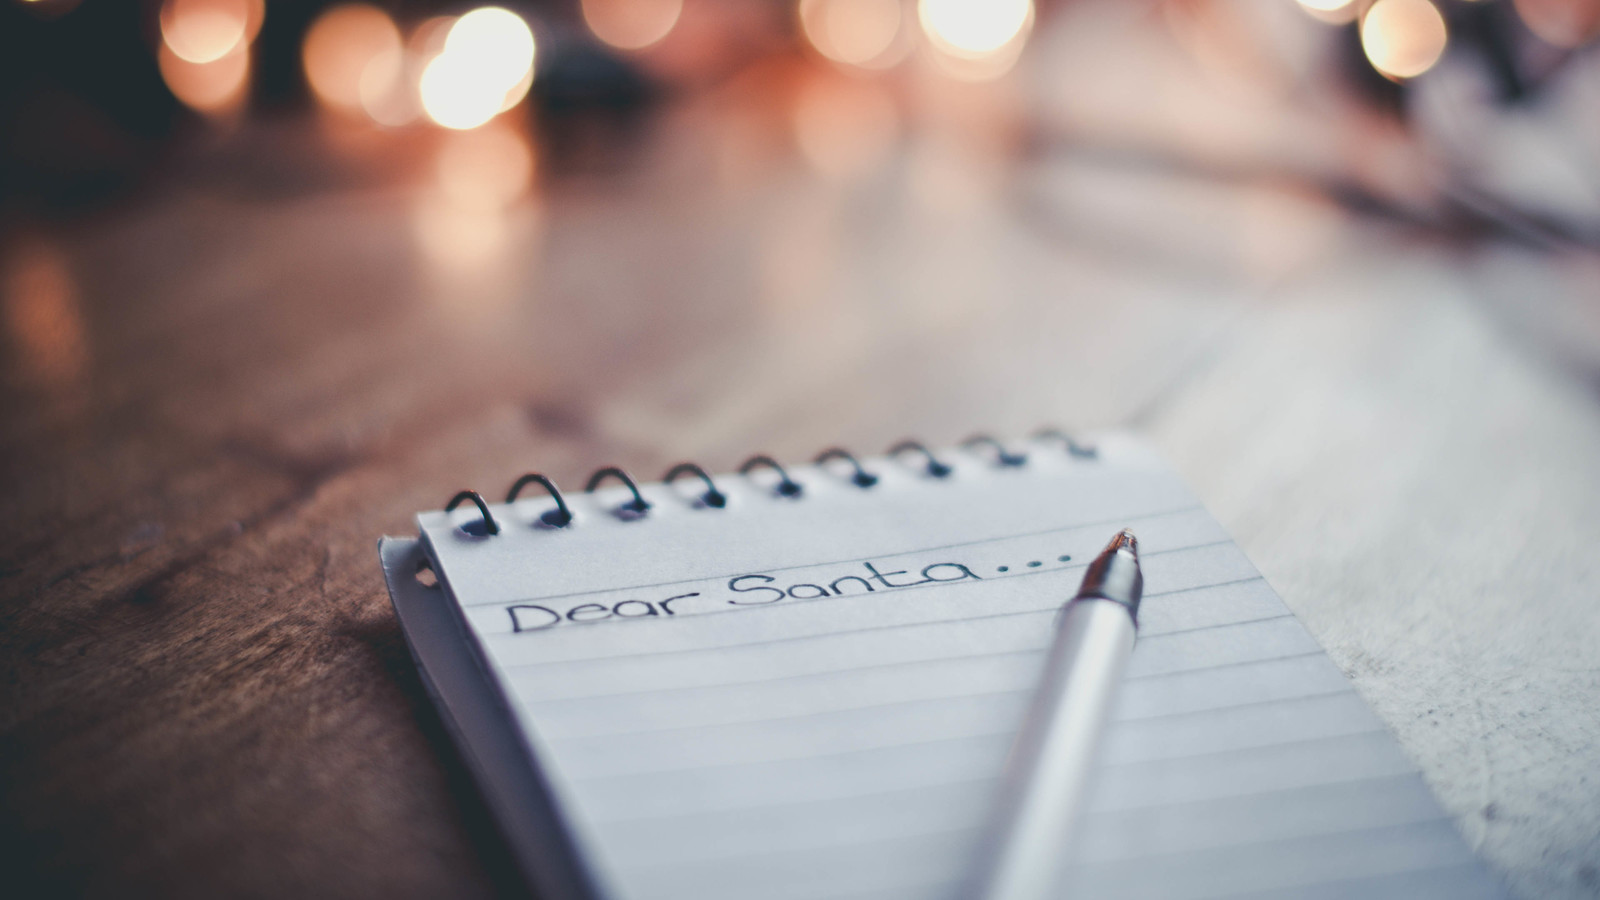 Dear Santa...